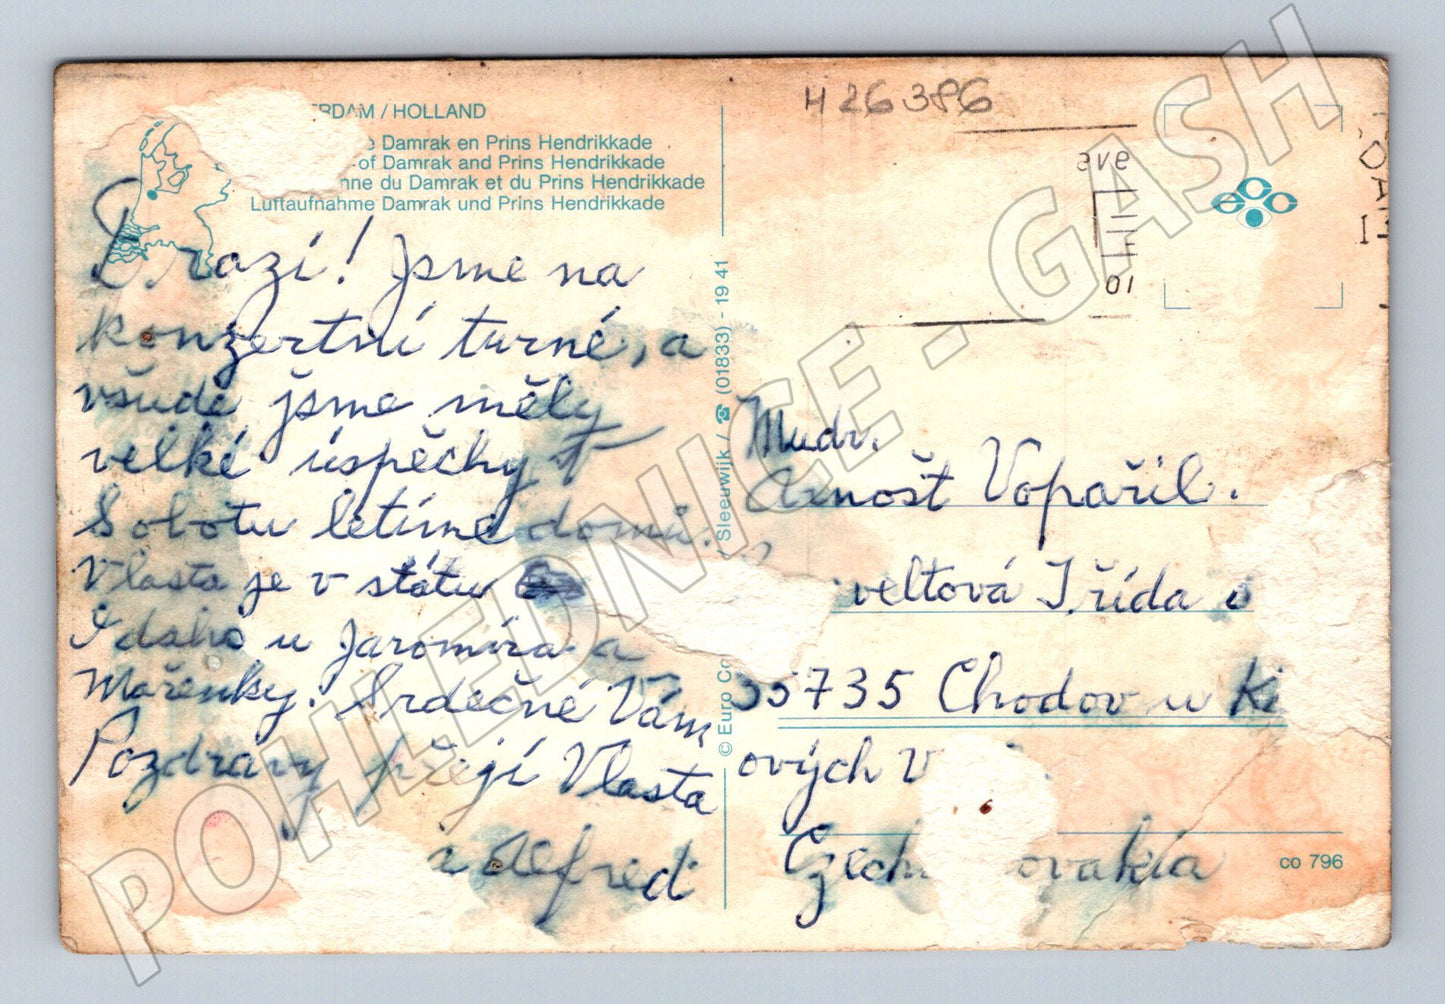 H 26386
RDAM / HOLLAND
Damrak en Prins Hendrikkade
of Damrak and Prins Hendrikkade
nne du Damrak et du Prins Hendrikkade
Luftaufnahme Damrak und Prins Hendrikkade
Drazí! Jsme na
konzertní turné, a
všude jsme měly
velké úspěchy
Sobotu letíme domů.
Vlasta je v státu
Idaho u Jaromíra a
Mařenky. Srdečné Vám
Pozdravy přejí Vlasta
a Alfred
© Euro Co
Sleeuwijk / ☎ (01833) - 19 41
Mudr.
Arnošt Vopařil.
veltová Třída
35735 Chodov u K
ových V
Czech ovakia
co 796
POHLEDNICE - GASH